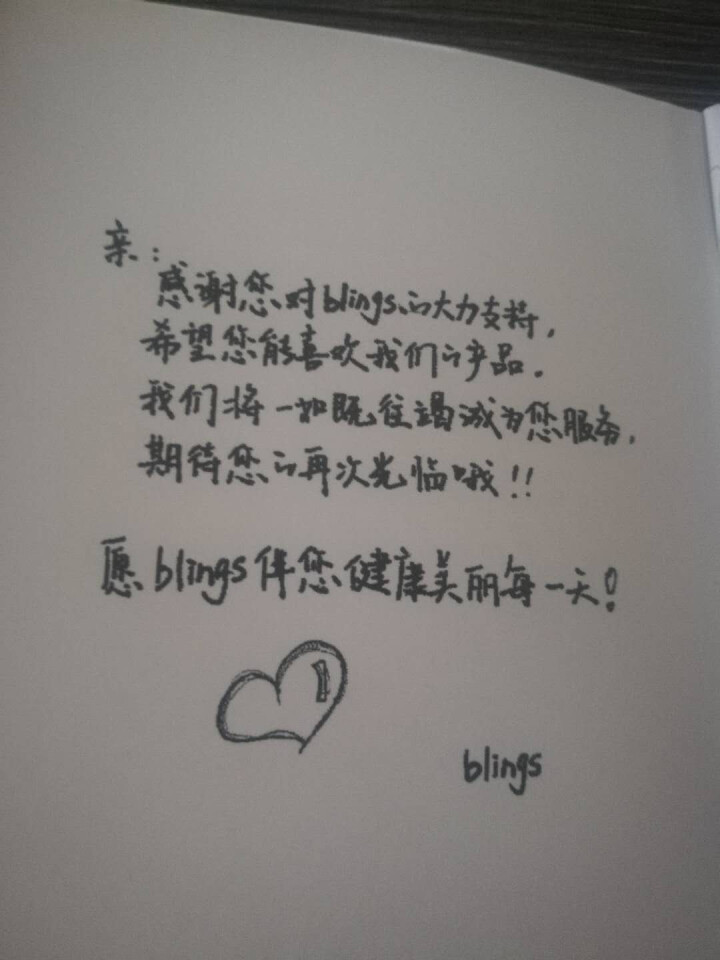 亲：
感谢您对blings的大力支持，
希望您能喜欢我们的产品.
我们将一如既往竭诚为您服务，
期待您的再次光临哦！！
愿blings伴您健康美丽每一天！
blings